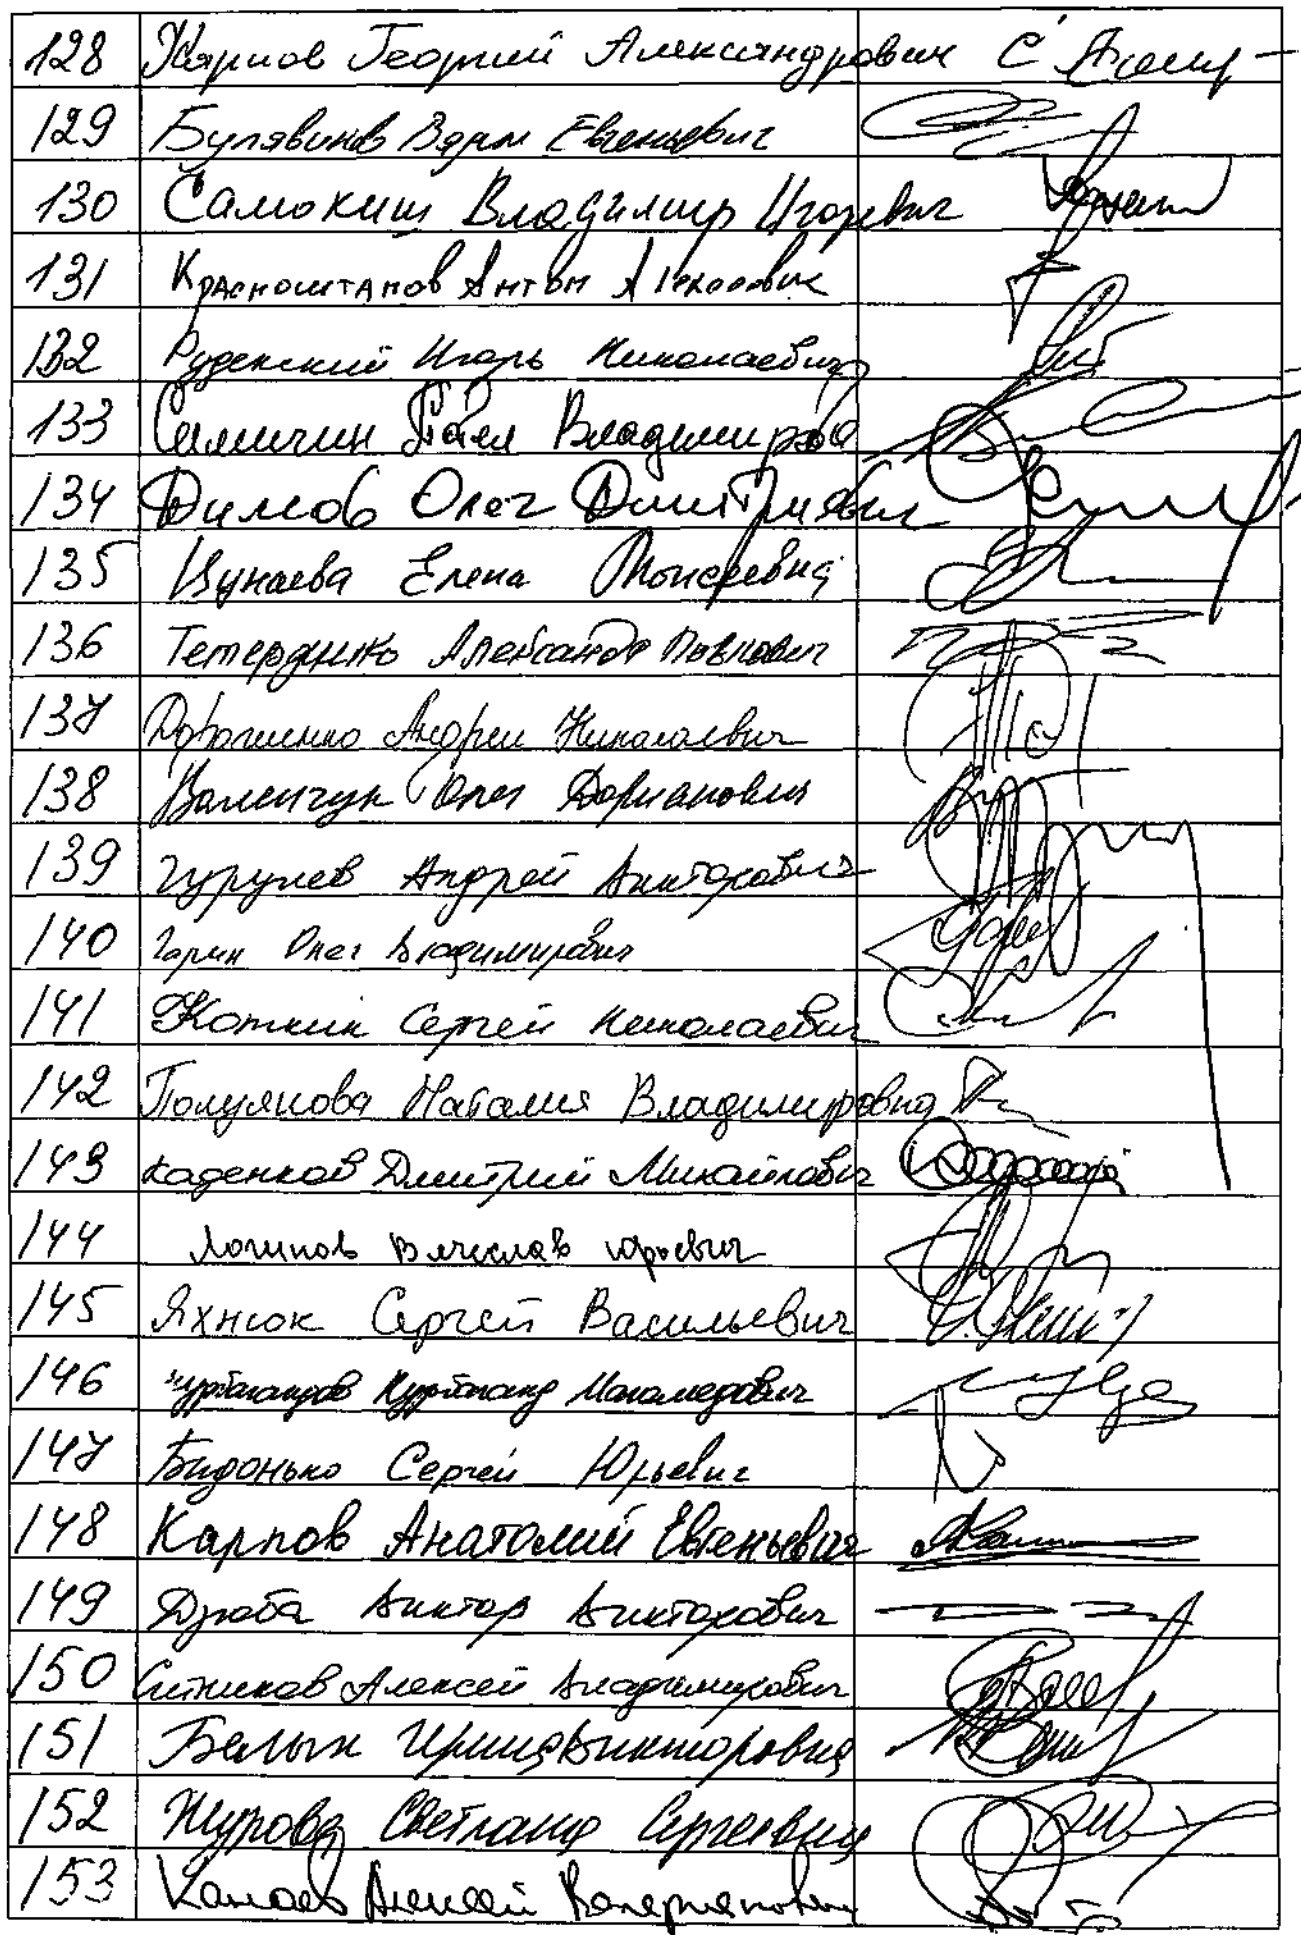 128 Карпов Георгий Александрович
129 Булавинов Вадим Евгеньевич
130 Самокиш Владимир Игоревич
131 Красноштанов Антон Алексеевич
132 Руденский Игорь Николаевич
133 Симигин Павел Владимиров
134 Димов Олег Дмитриевич
135 Цунаева Елена Моисеевна
136 Тетердинко Александр Павлович
137 Дорошенко Андрей Николаевич
138 Валенчук Олег Дорианович
139 Гурулев Андрей Викторович
140 Гарин Олег Владимирович
141 Коткин Сергей Николаевич
142 Полуянова Наталия Владимировна
143 Каденков Дмитрий Михайлович
144 Логинов Вячеслав Юрьевич
145 Яхнюк Сергей Васильевич
146 Мурзабеков Магомедович
147 Бидонько Сергей Юрьевич
148 Карпов Анатолий Евгеньевич
149 Дзюба Виктор Викторович
150 Ситников Алексей Владимирович
151 Белых Ирина Викторовна
152 Журова Светлана Сергеевна
153 Канаев Алексей Валерианович